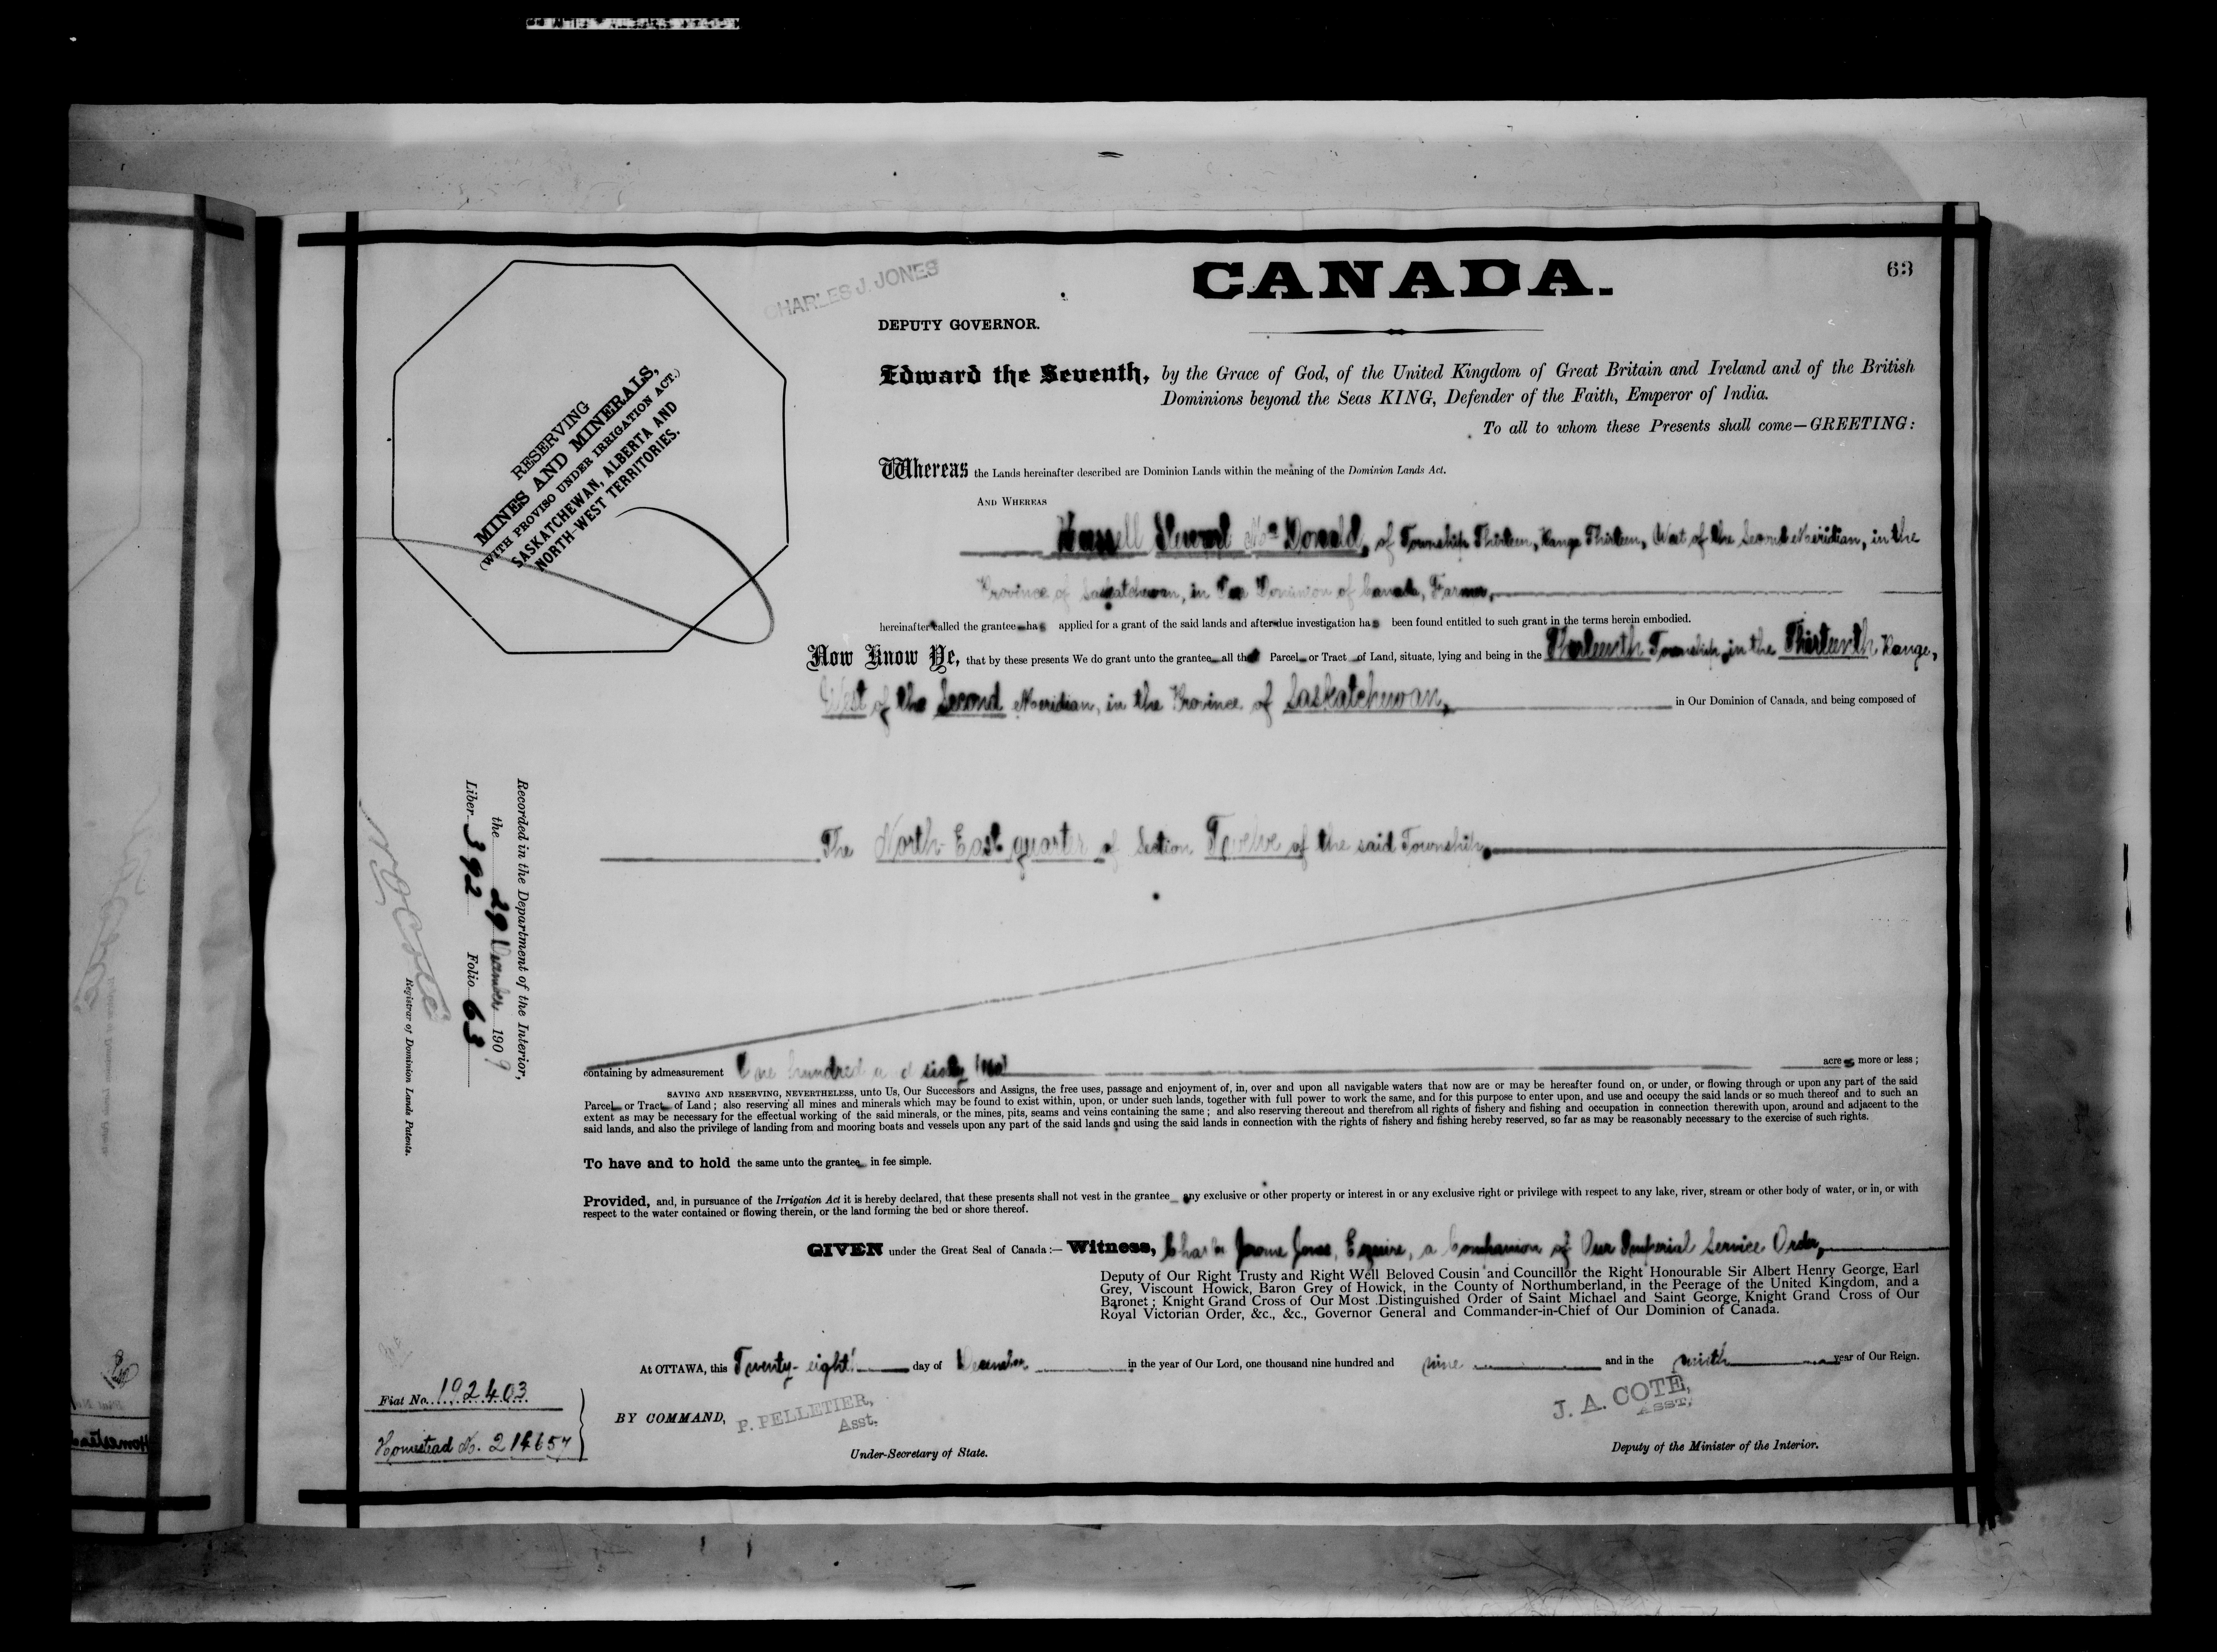 CANADA.
63
CHARLES J. JONES
DEPUTY GOVERNOR.
Edward the Seventh, by the Grace of God, of the United Kingdom of Great Britain and Ireland and of the British
Dominions beyond the Seas KING, Defender of the Faith, Emperor of India.
To all to whom these Presents shall come—GREETING:
RESERVING
MINES AND MINERALS,
(WITH PROVISO UNDER IRRIGATION ACT.)
SASKATCHEWAN, ALBERTA AND
NORTH-WEST TERRITORIES.
Whereas the Lands hereinafter described are Dominion Lands within the meaning of the Dominion Lands Act.
AND WHEREAS
Mc Donald, of Township Thirteen, Range Thirteen, West of the Second Meridian, in the
Province of Saskatchewan, in the Dominion of Canada, Farmer,
hereinafter called the grantee has applied for a grant of the said lands and after due investigation has been found entitled to such grant in the terms herein embodied.
Now Know Ye, that by these presents We do grant unto the grantee all that Parcel or Tract of Land, situate, lying and being in the Thirteenth Township, in the Thirteenth Range,
West of the Second Meridian, in the Province of Saskatchewan, in Our Dominion of Canada, and being composed of
The North East quarter of Section Twelve of the said Township,
containing by admeasurement One hundred and sixty (160) acres more or less ;
SAVING AND RESERVING, NEVERTHELESS, unto Us, Our Successors and Assigns, the free uses, passage and enjoyment of, in, over and upon all navigable waters that now are or may be hereafter found on, or under, or flowing through or upon any part of the said
Parcel or Tract of Land ; also reserving all mines and minerals which may be found to exist within, upon, or under such lands, together with full power to work the same, and for this purpose to enter upon, and use and occupy the said lands or so much thereof and to such an
extent as may be necessary for the effectual working of the said minerals, or the mines, pits, seams and veins containing the same ; and also reserving thereout and therefrom all rights of fishery and fishing and occupation in connection therewith upon, around and adjacent to the
said lands, and also the privilege of landing from and mooring boats and vessels upon any part of the said lands and using the said lands in connection with the rights of fishery and fishing hereby reserved, so far as may be reasonably necessary to the exercise of such rights.
To have and to hold the same unto the grantee in fee simple.
Provided, and, in pursuance of the Irrigation Act it is hereby declared, that these presents shall not vest in the grantee any exclusive or other property or interest in or any exclusive right or privilege with respect to any lake, river, stream or other body of water, or in, or with
respect to the water contained or flowing therein, or the land forming the bed or shore thereof.
GIVEN under the Great Seal of Canada :— Witness, Charles Jerome Jones, Esquire, a Companion of Our Imperial Service Order,
Deputy of Our Right Trusty and Right Well Beloved Cousin and Councillor the Right Honourable Sir Albert Henry George, Earl
Grey, Viscount Howick, Baron Grey of Howick, in the County of Northumberland, in the Peerage of the United Kingdom, and a
Baronet ; Knight Grand Cross of Our Most Distinguished Order of Saint Michael and Saint George, Knight Grand Cross of Our
Royal Victorian Order, &c., &c., Governor General and Commander-in-Chief of Our Dominion of Canada.
At OTTAWA, this Twenty-eight day of December in the year of Our Lord, one thousand nine hundred and nine and in the ninth year of Our Reign.
BY COMMAND, P. PELLETIER,
Asst.
Under-Secretary of State.
J. A. COTÉ,
ASST,
Deputy of the Minister of the Interior.
Recorded in the Department of the Interior,
the 29 December 1909
Liber 392 Folio 63
N O Coté
Registrar of Dominion Lands Patents.
Fiat No. 192403
Homestead No. 214657